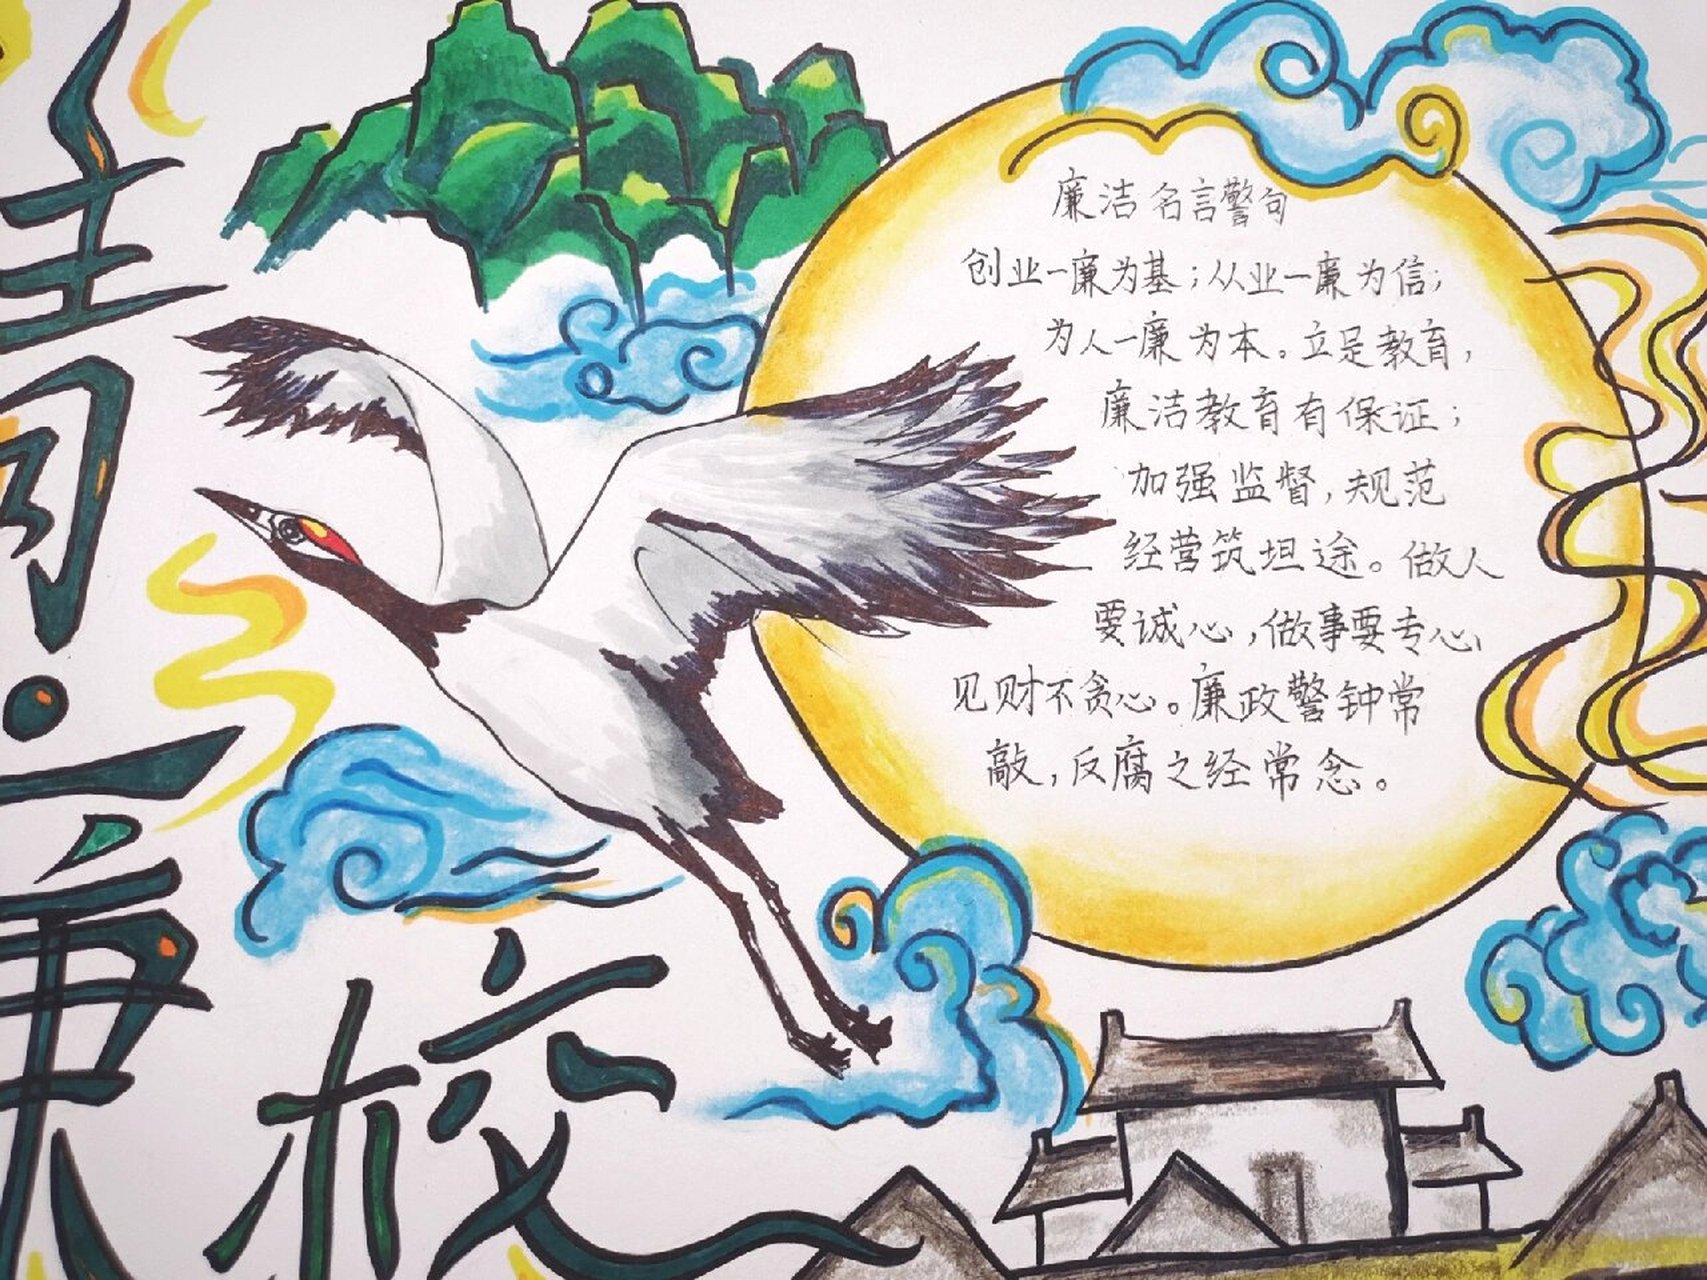 清·廉
校
廉洁名言警句
创业一廉为基；从业一廉为信；
为人一廉为本。立足教育，
廉洁教育有保证；
加强监督，规范
经营筑坦途。做人
要诚心，做事要专心、
见财不贪心。廉政警钟常
敲，反腐之经常念。